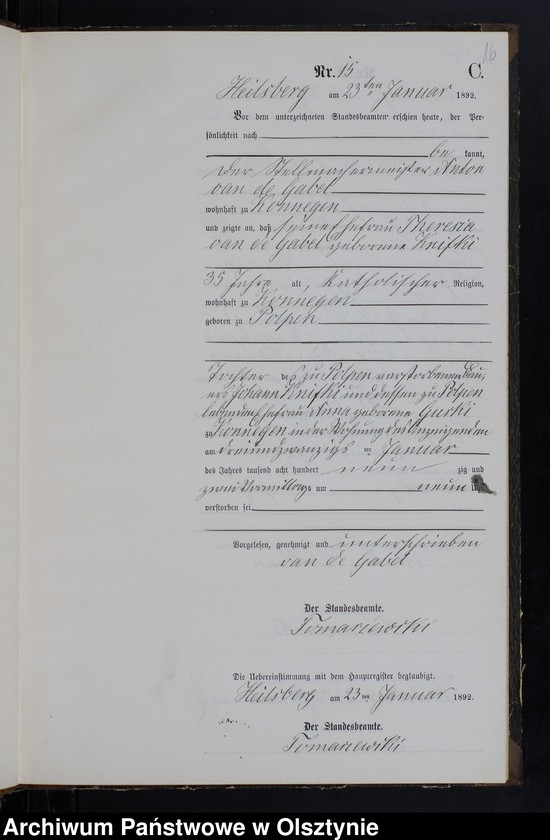 16
Nr. 15 C.
Heilsberg am 23ten Januar 1892.
Vor dem unterzeichneten Standesbeamten erschien heute, der Per-
sönlichkeit nach
be kannt,
der Stellmachermeister Anton
van de Gabel
wohnhaft zu Konnegen
und zeigte an, daß seine Ehefrau Theresia
van de Gabel geborene Knifki
35 Jahre alt, katholischer Religion,
wohnhaft zu Konnegen
geboren zu Polpen
Tochter des zu Polpen verstorbenen Bau-
ers Johann Knifki und dessen zu Polpen
lebenden Ehefrau Anna geborene Gurski
zu Konnegen in der Wohnung des Anzeigenden
am dreiundzwanzigsten Januar
des Jahres tausend acht hundert neun zig und
zwei Vormittags um neun Uhr
verstorben sei
Vorgelesen, genehmigt und unterschrieben
van de Gabel
Der Standesbeamte.
Tomaszewski
Die Uebereinstimmung mit dem Hauptregister beglaubigt.
Heilsberg am 23ten Januar 1892.
Der Standesbeamte.
Tomaszewski
Archiwum Państwowe w Olsztynie